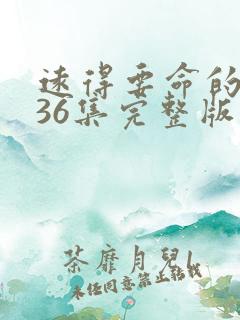 速得要命的
36集完整版
荼靡月兒
未经同意禁止转载